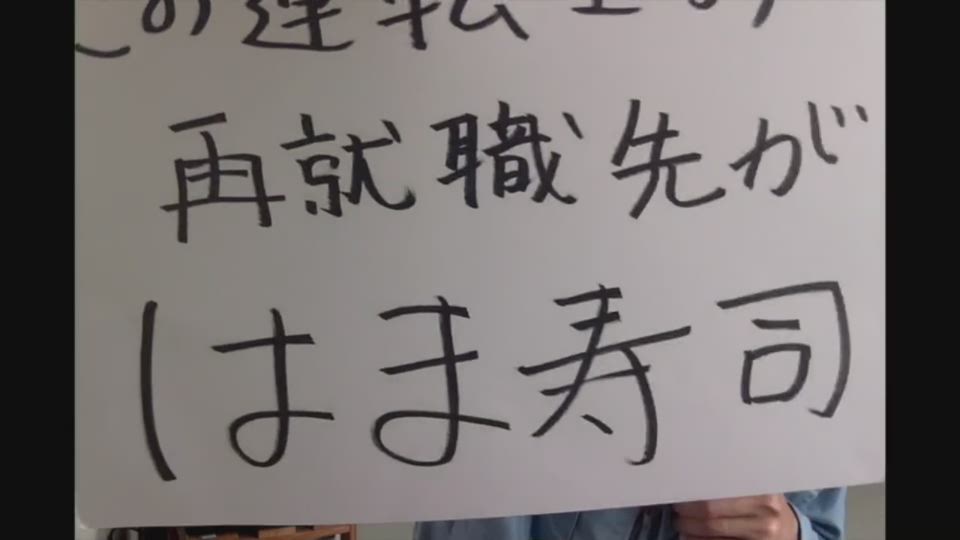 この運転士の
再就職先が
はま寿司